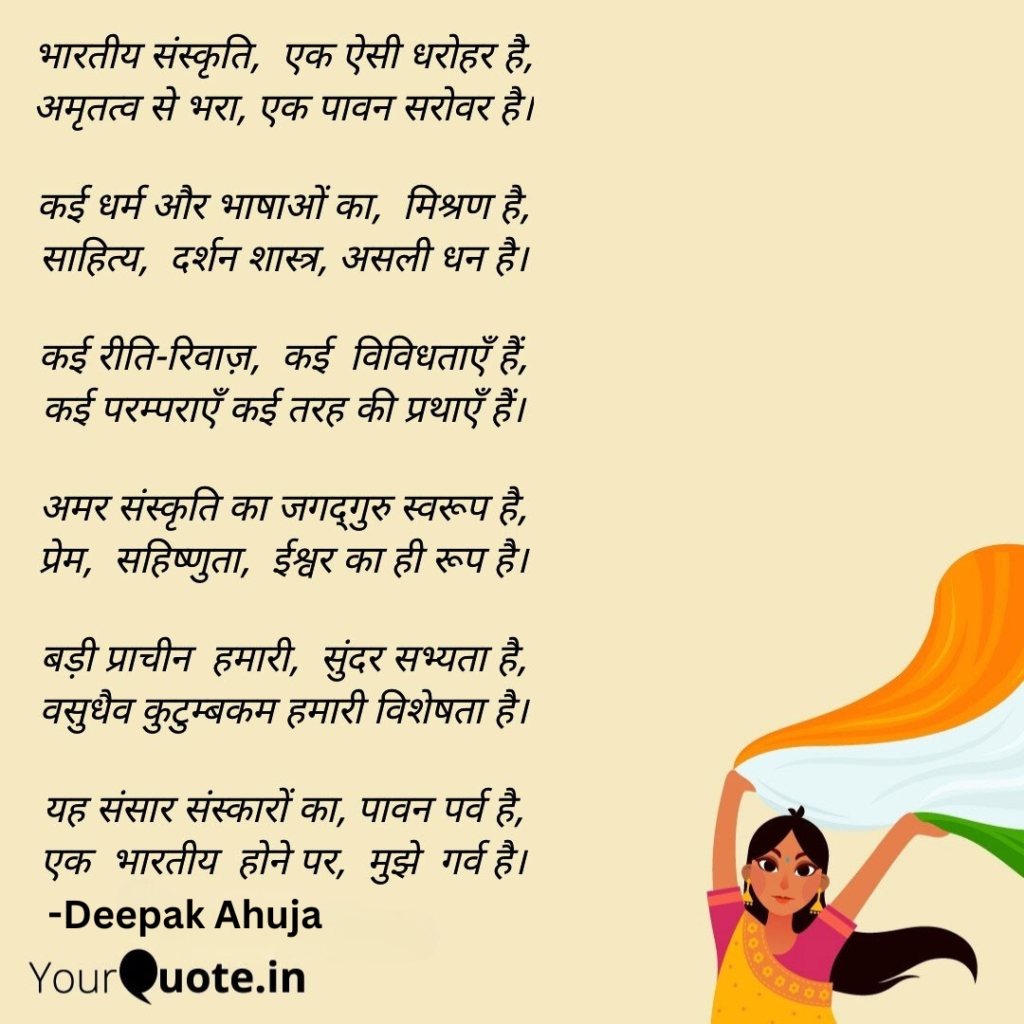 भारतीय संस्कृति, एक ऐसी धरोहर है,
अमृतत्व से भरा, एक पावन सरोवर है।
कई धर्म और भाषाओं का, मिश्रण है,
साहित्य, दर्शन शास्त्र, असली धन है।
कई रीति-रिवाज़, कई विविधताएँ हैं,
कई परम्पराएँ कई तरह की प्रथाएँ हैं।
अमर संस्कृति का जगद्गुरु स्वरूप है,
प्रेम, सहिष्णुता, ईश्वर का ही रूप है।
बड़ी प्राचीन हमारी, सुंदर सभ्यता है,
वसुधैव कुटुम्बकम हमारी विशेषता है।
यह संसार संस्कारों का, पावन पर्व है,
एक भारतीय होने पर, मुझे गर्व है।
-Deepak Ahuja
YourQuote.in